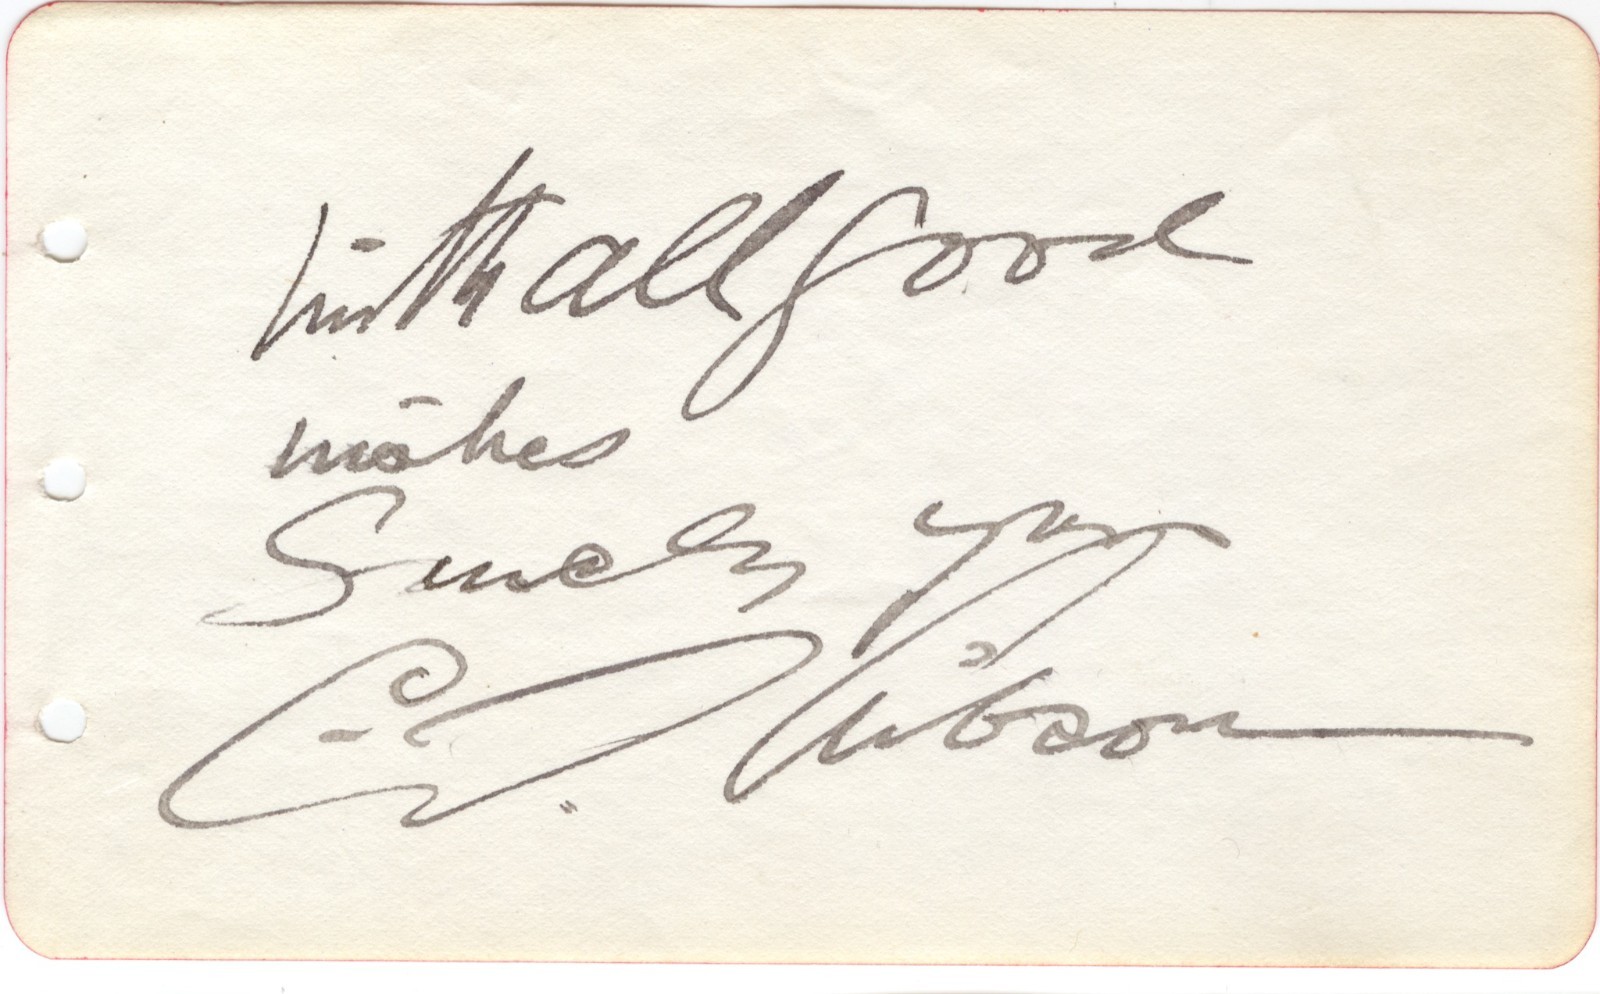 With all good
wishes
Sincerely yours
C. D. Gibson